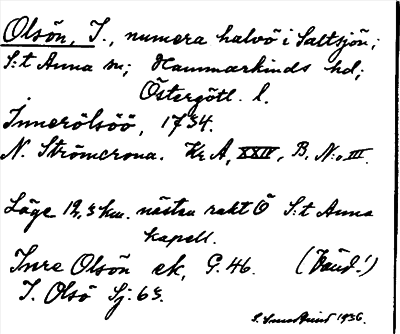 Olsön, I., numera halvö i Saltsjön;
S:t Anna sn; Hammarkinds hd;
Östergötl. l.
Innerölsöö, 1734.
N. Strömcrona. Kr. A, XXIV, B. N:o III.
Läge 12,3 km. nästan rakt Ö S:t Anna
kapell.
Inre Olsön ek, G. 46. (Vänd!)
I. Olsö Sj. 63.
1936.